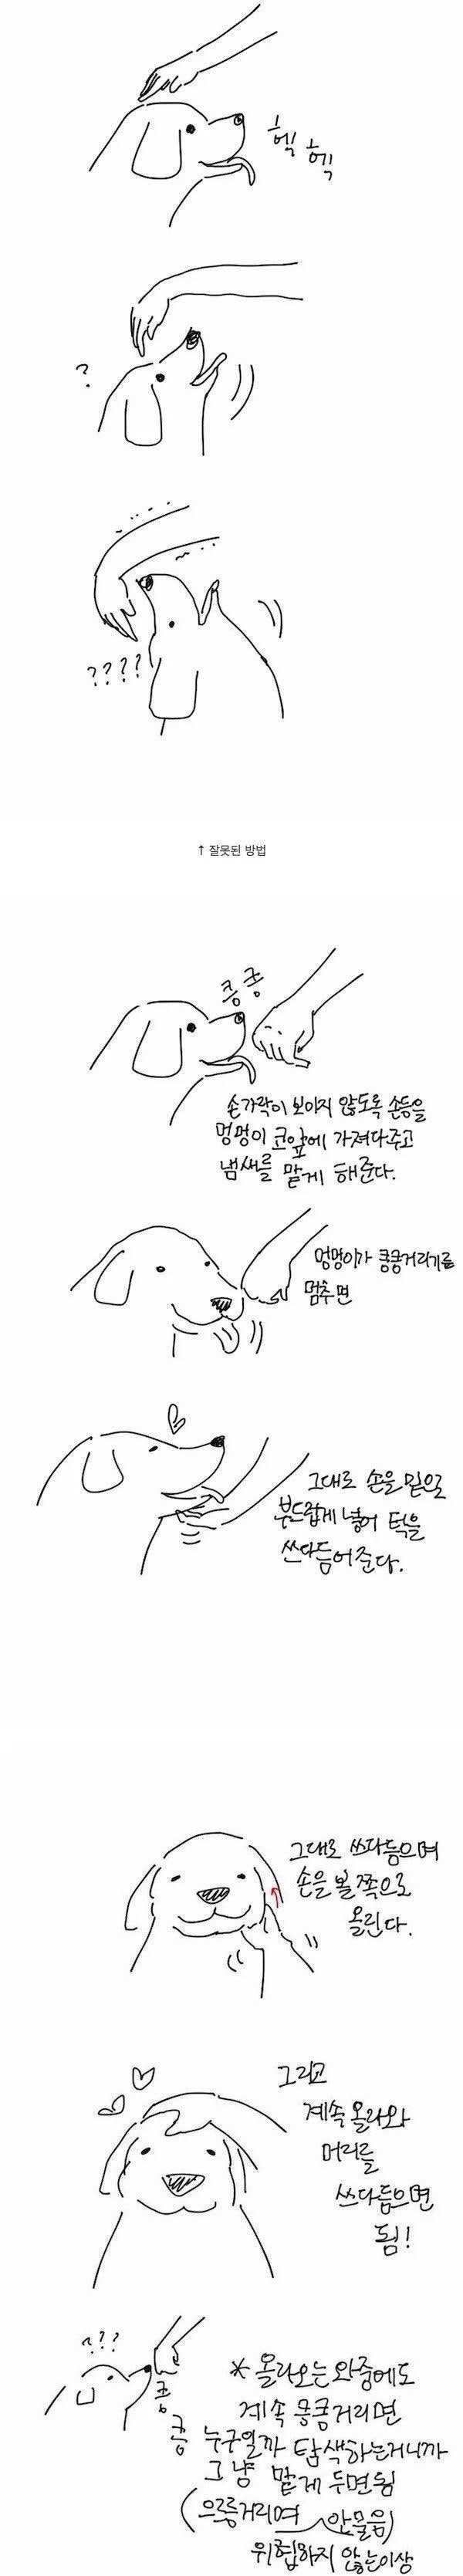 헥 헥
?
????
↑ 잘못된 방법
킁킁
손가락이 보이지 않도록 손등을
멍멍이 코앞에 가져다주고
냄새를 맡게 해준다.
멍멍이가 킁킁거리기를
멈추면
그대로 손을 밑으로
부드럽게 넣어 턱을
쓰다듬어준다.
그대로 쓰다듬으며
손을 볼쪽으로
올린다.
그리고
계속 올라와
머리를
쓰다듬으면
됨!
???
킁
킁
* 올라오는 와중에도
계속 킁킁거리면
누구일까 탐색하는거니까
그냥 맡게 두면됨
(으르릉거리며 안물음)
위협하지 않는이상